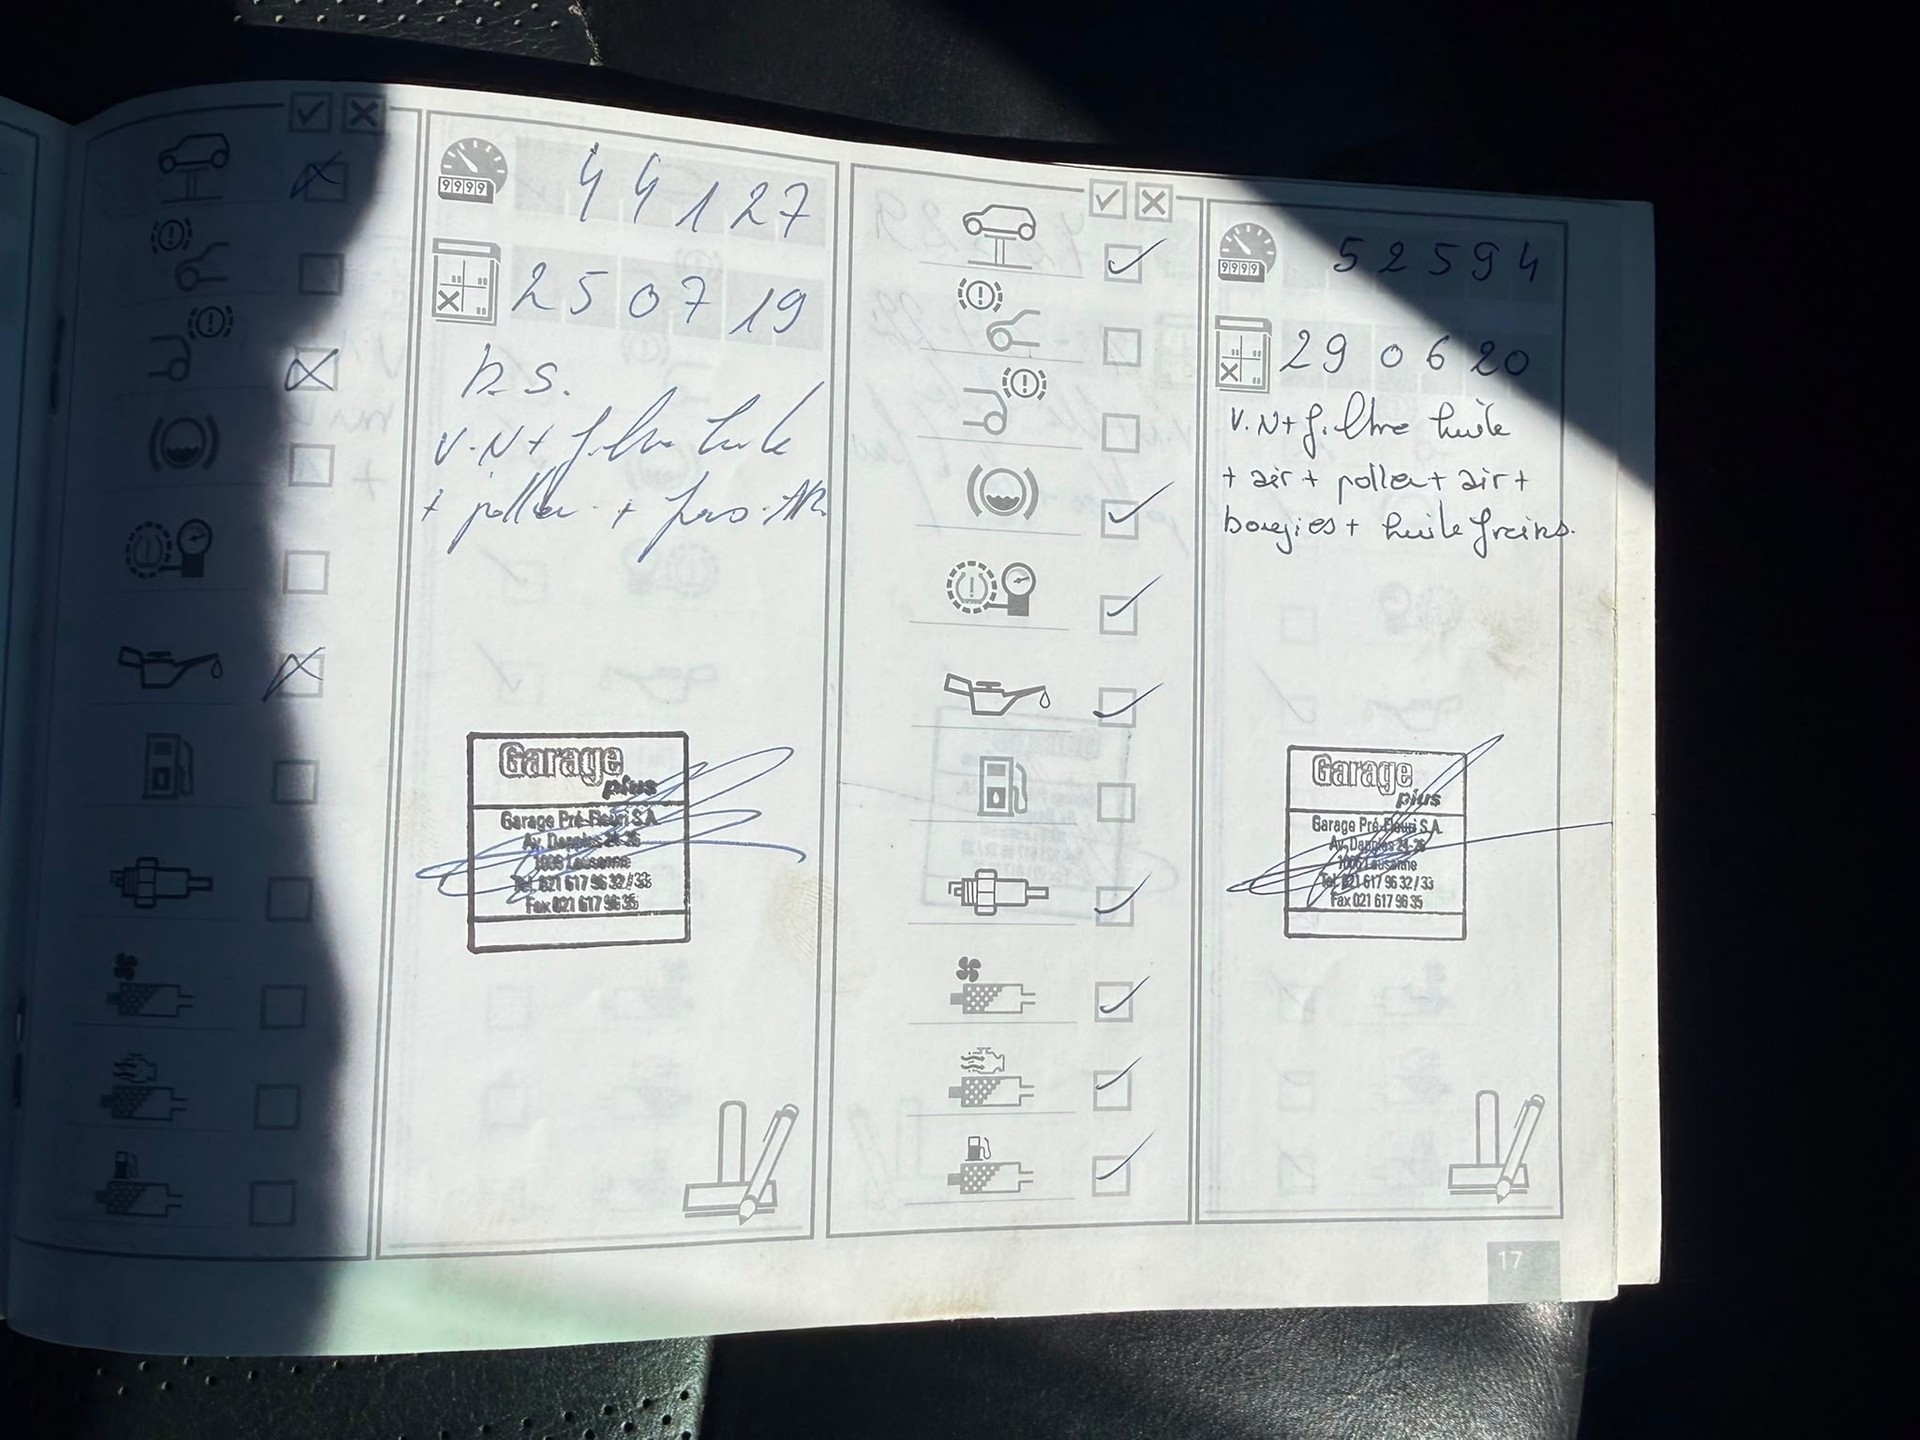 9999
44127
25 07 19
b.s.
V.N+ filtre huile
+ pollen + AR
Garage
plus
Garage Pré-Fleuri S.A.
Av. Dapples 24-26
1006 Lausanne
Tel. 021 617 96 32 / 33
Fax 021 617 96 35
9999
52594
29 06 20
V.N+ filtre huile
+ air + pollen + air +
bougies + huile freins.
Garage
plus
Garage Pré-Fleuri S.A.
Av. Dapples 24-26
1006 Lausanne
Tel. 021 617 96 32 / 33
Fax 021 617 96 35
17